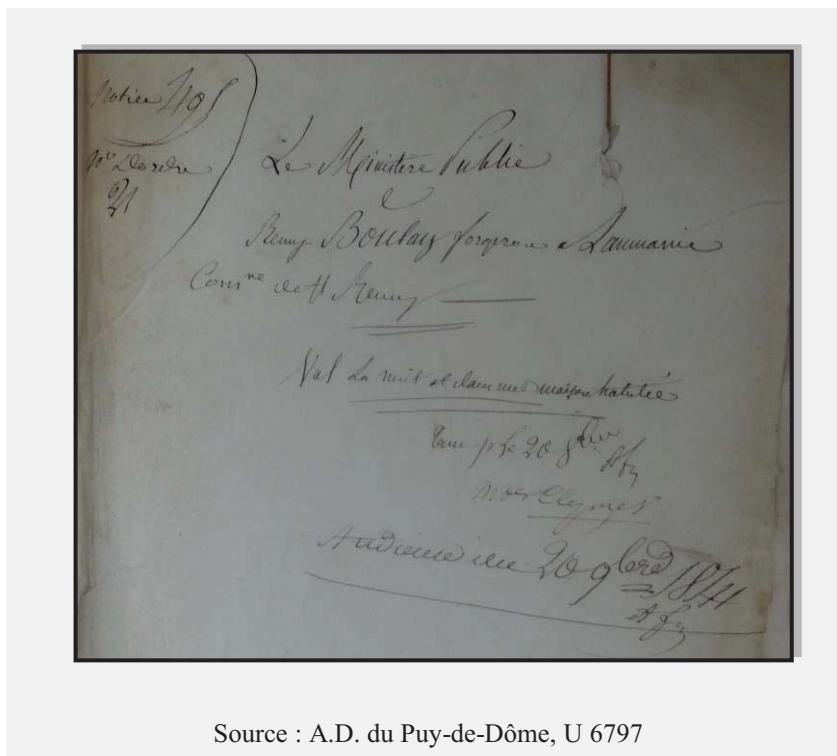 Notice 405
N° d'ordre
21
Le Ministère Public
C
Remy Boulay forgeron a
Com ne de St Remy
Vol la nuit et dans une maison habitée
20 9bre
Audience du 20 9bre 1841
Source : A.D. du Puy-de-Dôme, U 6797